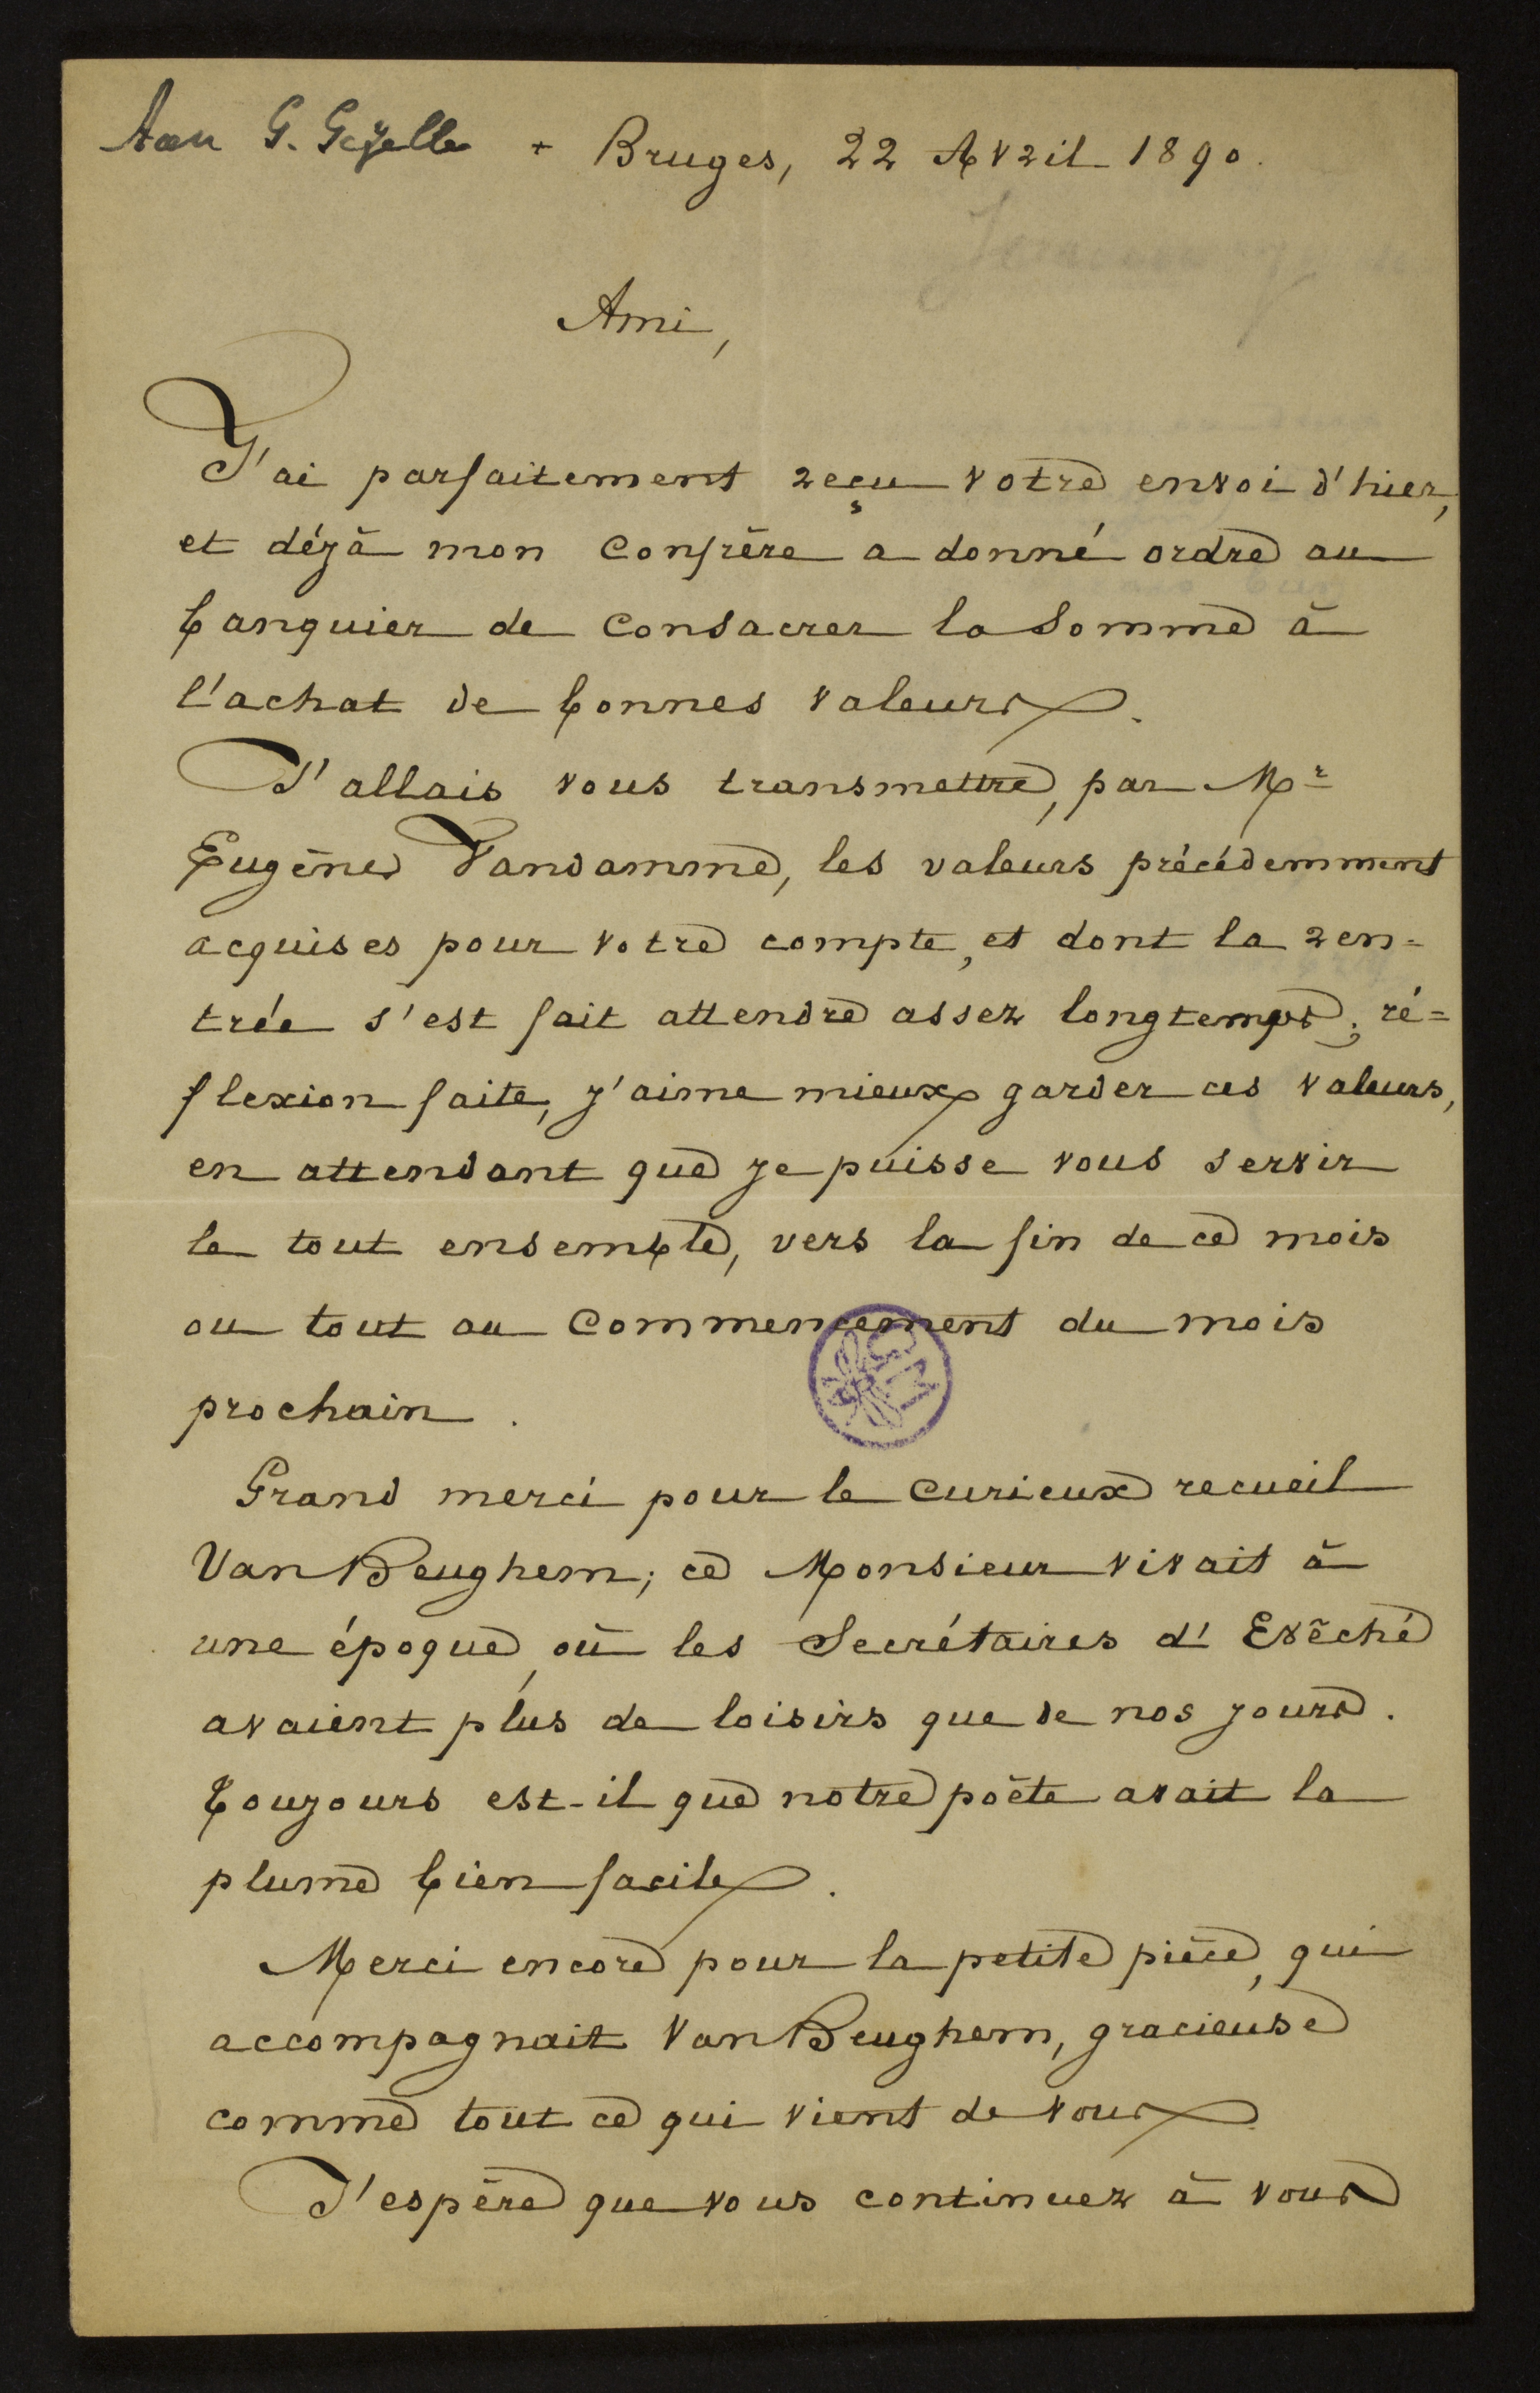 Aan G. Gezelle + Bruges, 22 Avril 1890.
Ami,
J'ai parfaitement reçu votre envoi d'hier,
et déjà mon confrère a donné ordre au
banquier de consacrer la somme à
l'achat de bonnes valeurs.
J'allais vous transmettre, par Mr
Eugène Vandamme, les valeurs précédemment
acquises pour votre compte, et dont la ren=
trée s'est fait attendre assez longtemps; ré=
flexion faite, j'aime mieux garder ces valeurs,
en attendant que je puisse vous servir
le tout ensemble, vers la fin de ce mois
ou tout au commencement du mois
prochain.
Grand merci pour le curieux recueil
Van Beughem; ce Monsieur vivait à
une époque, où les Secrétaires d'Evêché
avaient plus de loisirs que de nos jours.
Toujours est-il que notre poète avait la
plume bien facile.
Merci encore pour la petite pièce, qui
accompagnait Van Beughem, gracieuse
comme tout ce qui vient de vous.
J'espère que vous continuez à vous